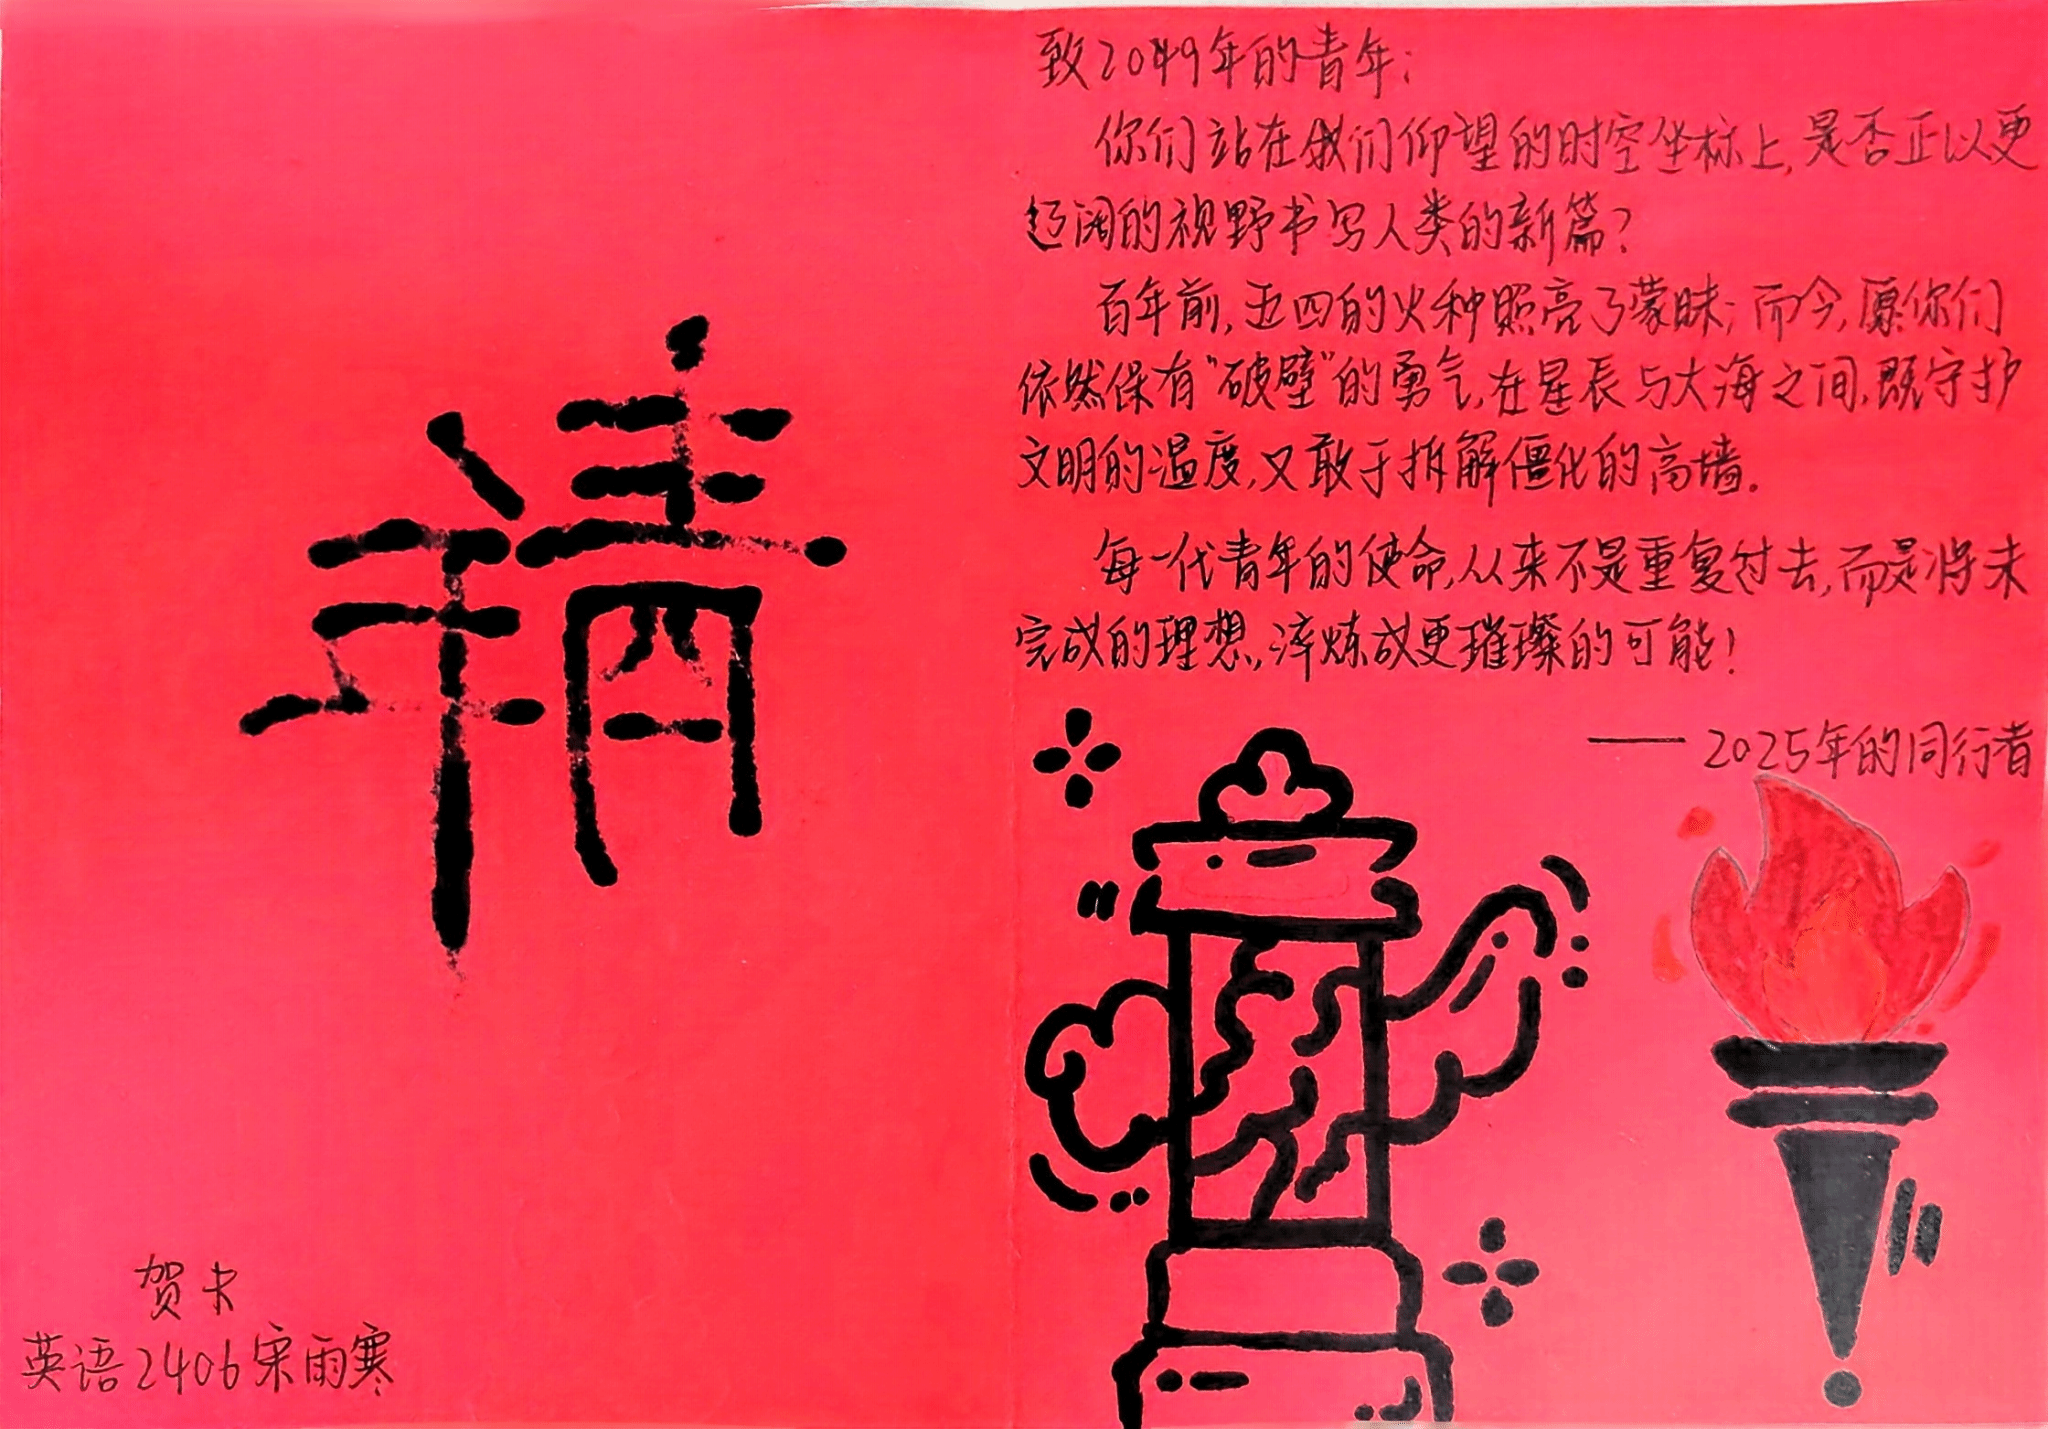 青年
贺卡
英语2406宋雨寒
致2049年的青年:
你们站在我们仰望的时空坐标上,是否正以更
辽阔的视野书写人类的新篇?
百年前,五四的火种照亮了蒙昧;而今,愿你们
依然保有"破壁"的勇气,在星辰与大海之间,既守护
文明的温度,又敢于拆解僵化的高墙.
每一代青年的使命,从来不是重复过去,而是将未
完成的理想,淬炼成更璀璨的可能!
——2025年的同行者